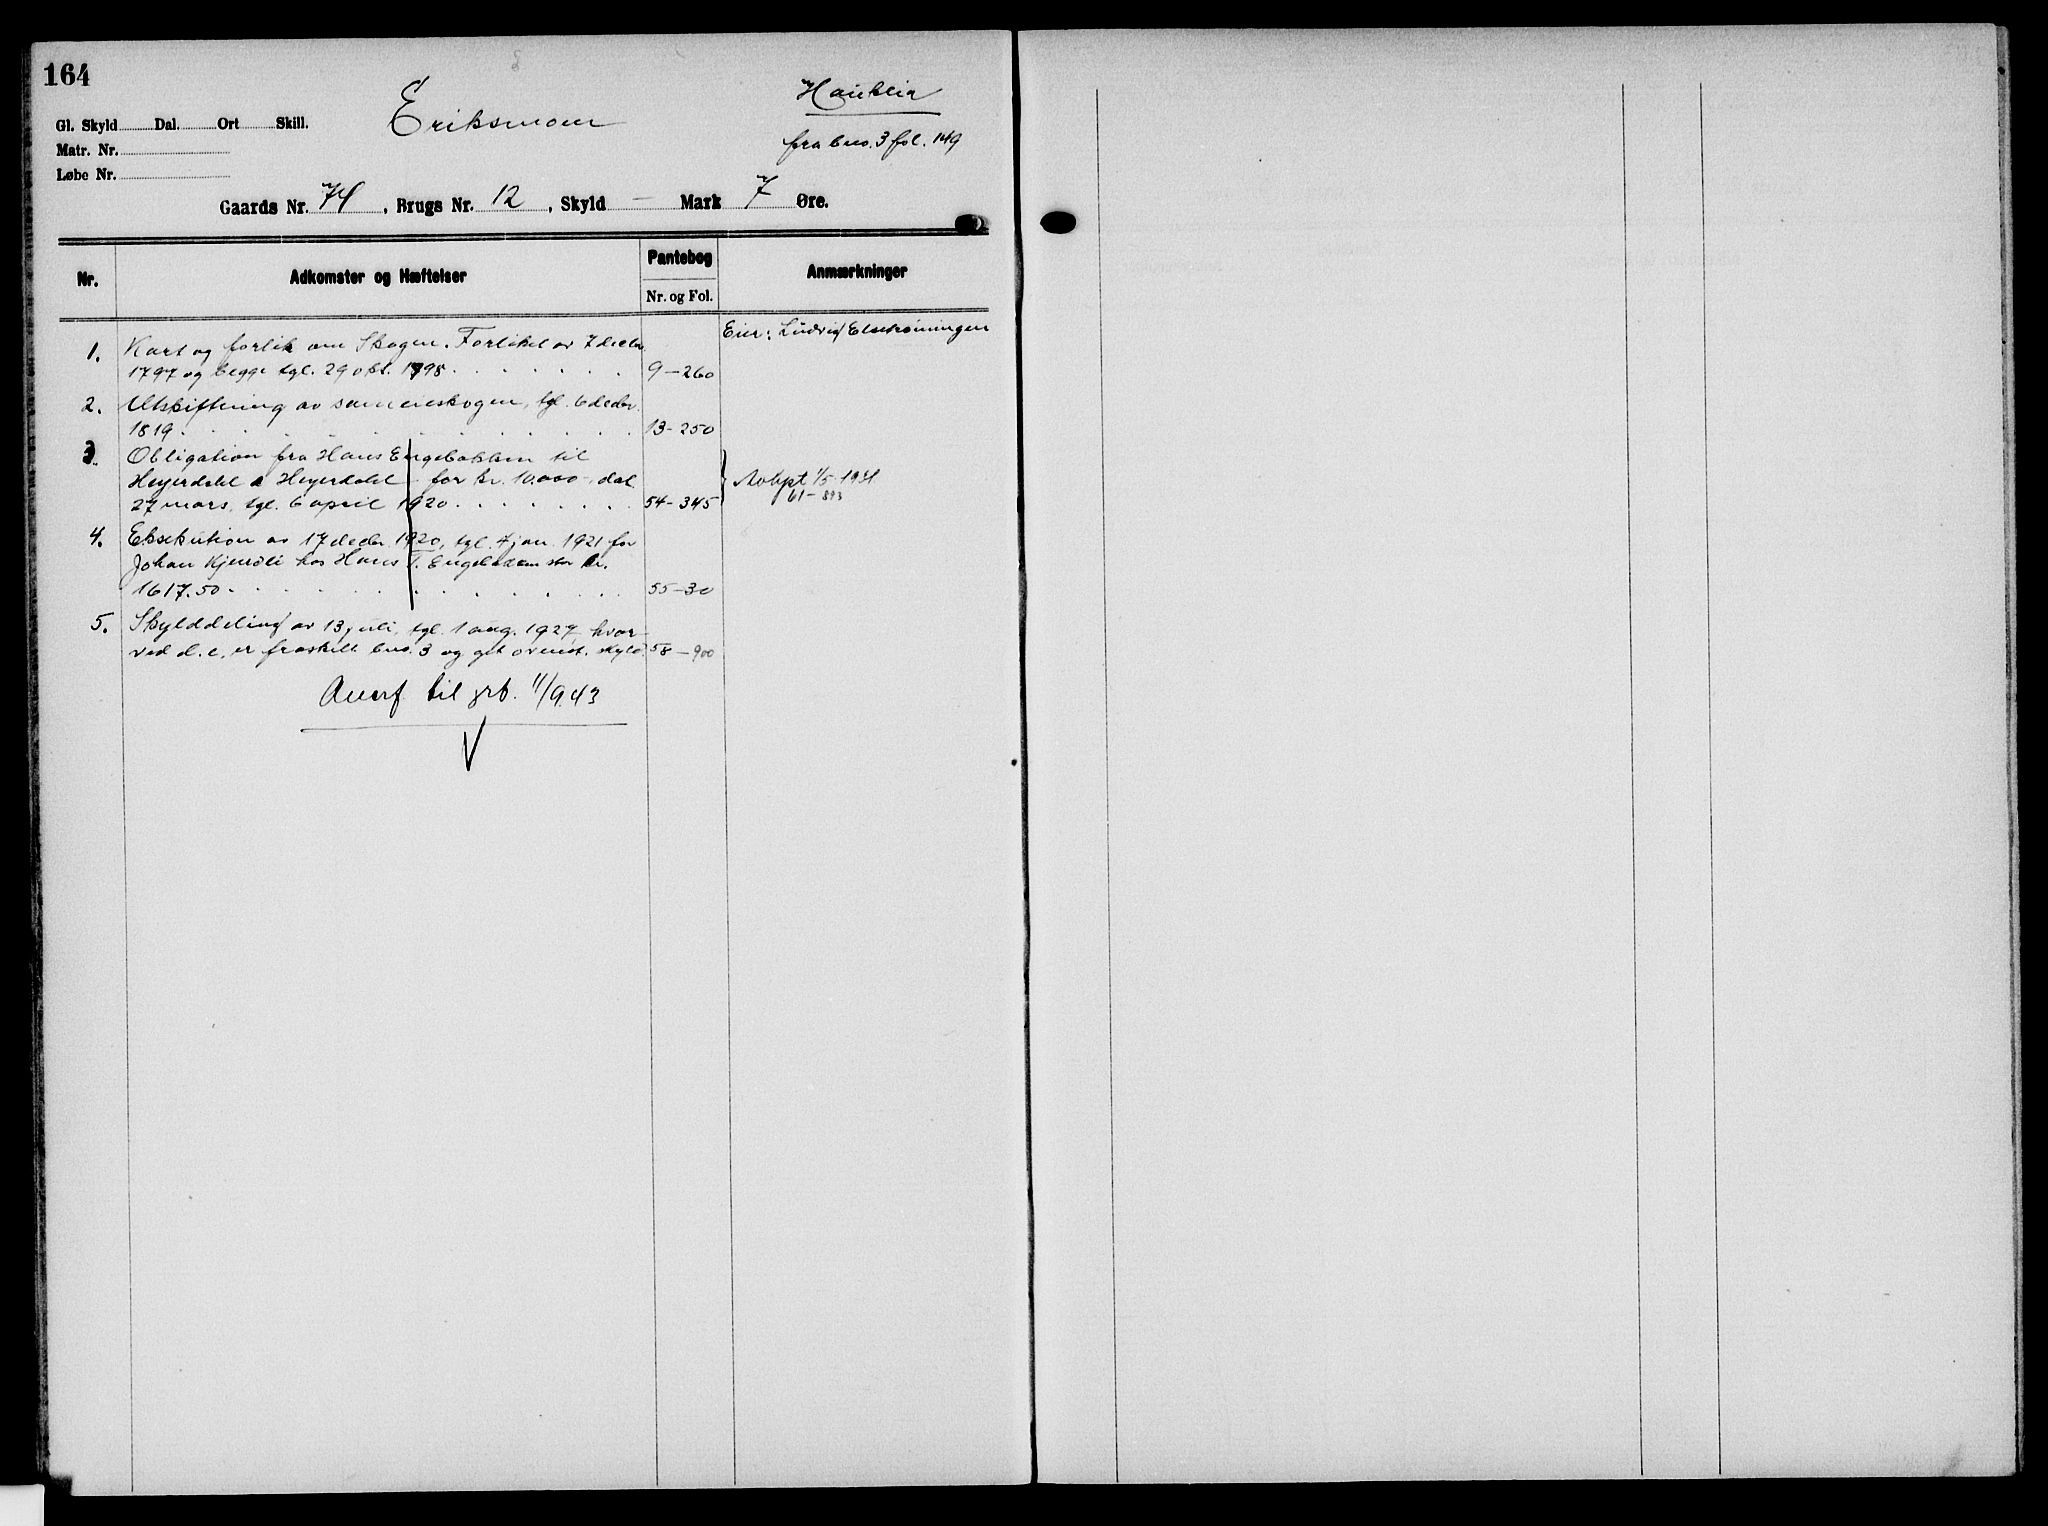 164
Eriksmoen
Haukleia
fra bno. 3 fol. 149
Gl. Skyld Dal. Ort Skill.
Matr. Nr.
Løbe Nr.
Gaards Nr. 74, Brugs Nr. 12, Skyld — Mark 7 Øre.
Nr. Adkomster og Hæftelser Pantebog Nr. og Fol. Anmærkninger
Eier: Ludvig
1. Kart og forlik om Skogen. Forliket av 7 decbr.
1797 og begge tgl. 29 okt. 1798 9-260
2. Utskiftning av sameieskogen, tgl. 6 decbr.
1819 13-250
3. Obligation fra Hans Engebakken til
Heyerdahl & Heyerdahl for kr. 10.000-, dat.
27 mars, tgl. 6 april 1920 54-345
Avlyst 1/5-1931
61-893
4. Eksekution av 17 decbr. 1920, tgl. 4 jan. 1921 for
Johan Kjensli hos Hans T. stor kr.
1617.50 55-30
5. Skylddeling av 13 juli, tgl. 1 aug. 1927, hvor-
ved d. e. er fraskilt bno. 3 og git ovenst. skyld 58-900
Overf til grb. 11/9.43